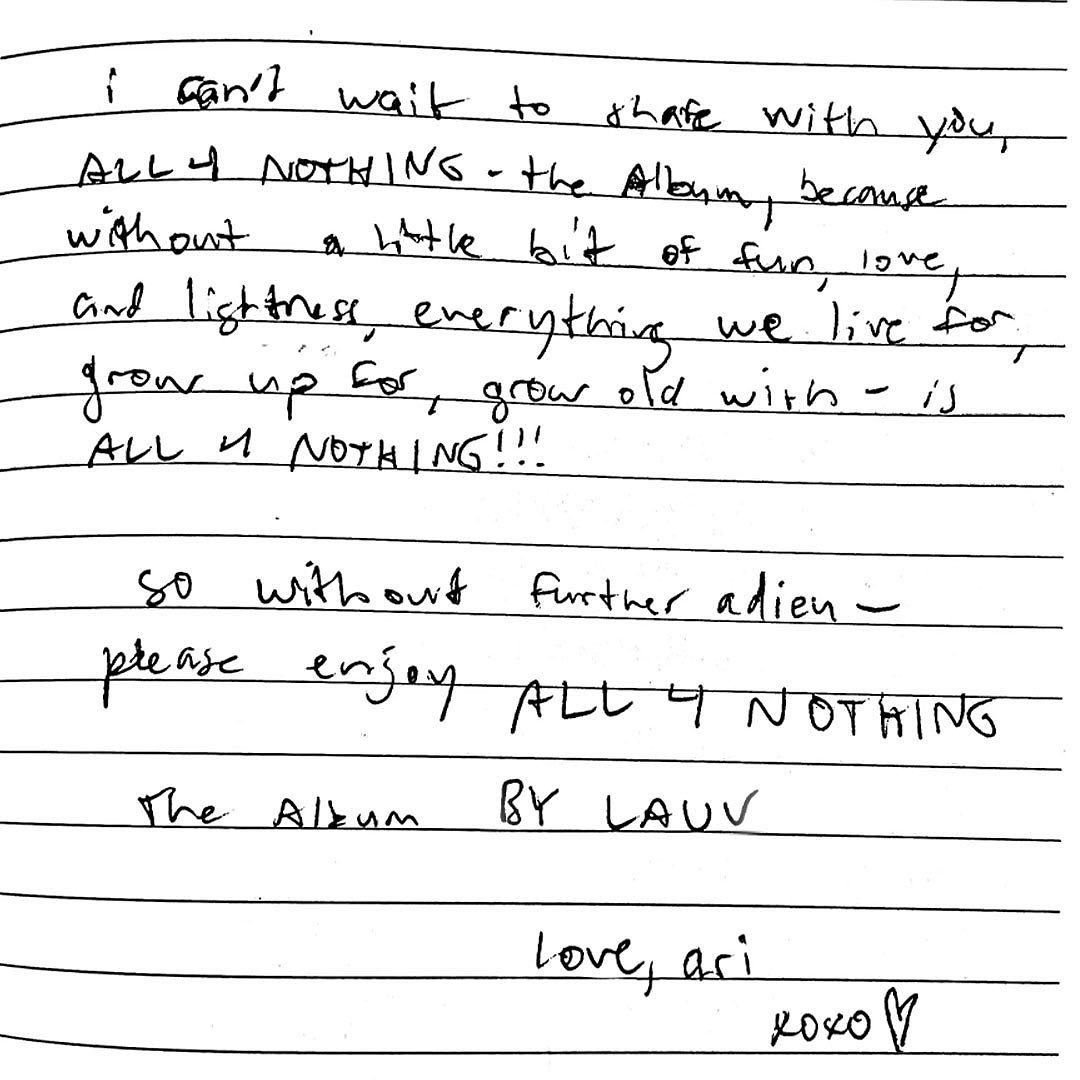 i can't wait to share with you,
ALL 4 NOTHING - the Album, because
without a little bit of fun, love,
and lightness, everything we live for,
grow up for, grow old with - is
ALL 4 NOTHING!!!
so without further adieu -
please enjoy ALL 4 NOTHING
The Album BY LAUV
love, ari
xoxo ♡